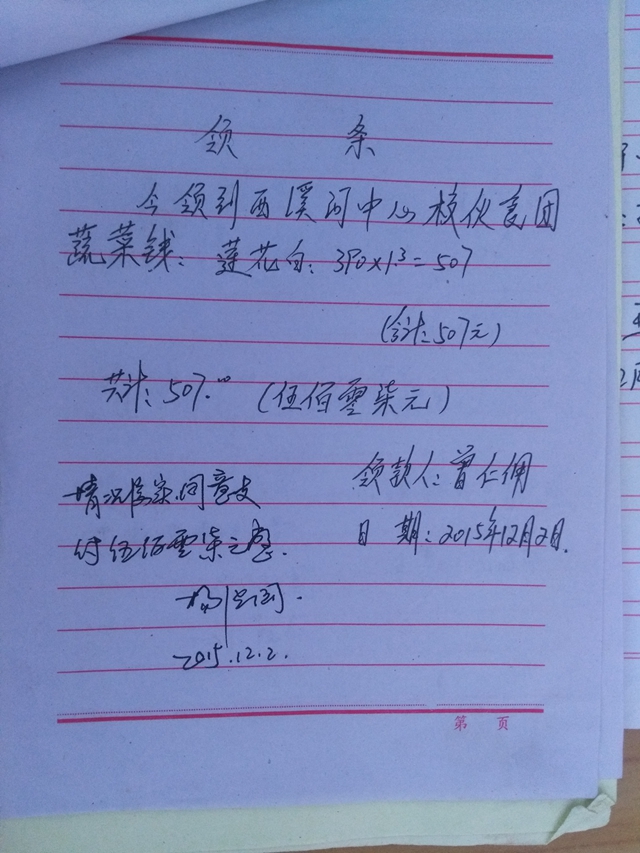 领 条
今领到西溪河中心校伙食团
蔬菜钱：莲花白：390×1.3=507
（合计：507元）
共计：507.00 （伍佰零柒元）
领款人：曾仁佣
日 期：2015年12月2日.
情况属实.同意支
付伍佰零柒元整.
2015.12.2.
第 页